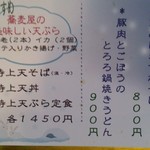 蕎麦屋の
美味しい天ぷら
老(2本)イカ(2個)
テ入りかき揚げ・野菜
特上天そば(温・冷)
特上天丼
特上天ぷら定食
各1450円
800円
豚肉とごぼうの
とろろ鍋焼きうどん
900円